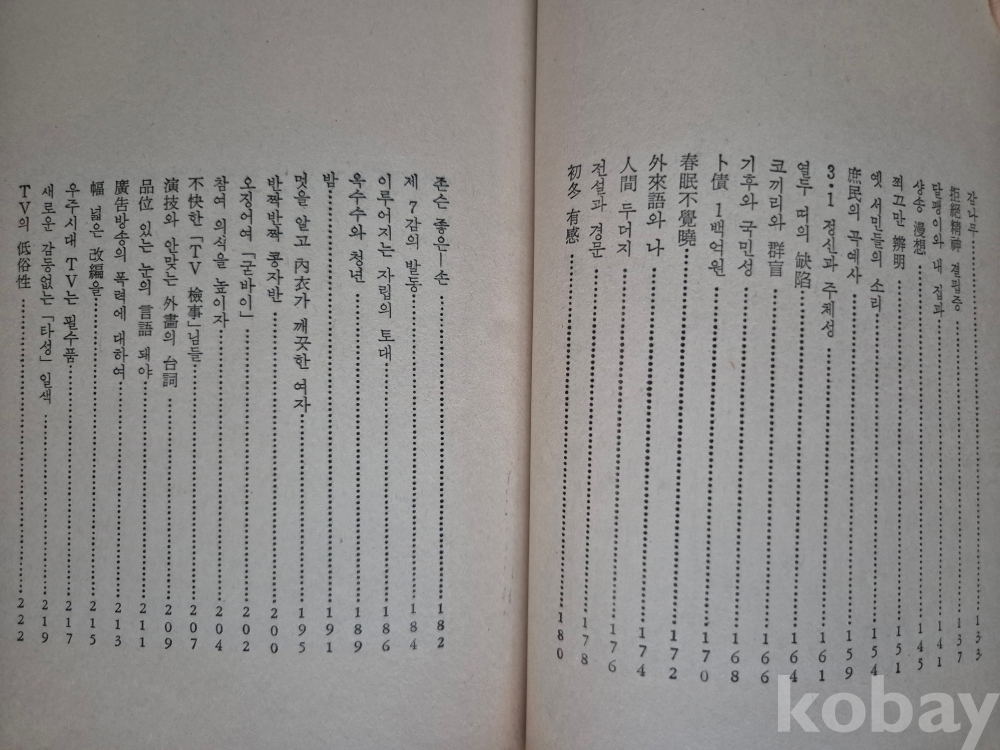 갈나무……133
拒絕精神 결핍증……137
달팽이와 내 집과……141
샹송 漫想……145
쬐끄만 辨明……151
옛 서민들의 소리……154
庶民의 곡예사……159
3·1 정신과 주체성……161
열두 띠의 缺陷……164
코끼리와 群盲……166
기후와 국민성……168
卜債 1백억원……170
春眠不覺曉……172
外來語와 나……174
人間 두더지……176
전설과 경문……178
初冬 有感……180
존슨 좋은—손……182
제 7감의 발동……184
이루어지는 자립의 토대……186
옥수수와 청년……189
밤……191
멋을 알고 內衣가 깨끗한 여자……195
반짝반짝 콩자반……200
오징어여 「굳바이」……202
참여 의식을 높이자……204
不快한 「TV 檢事」님들……207
演技와 안맞는 外畵의 台詞……209
品位 있는 눈의 言語 돼야……211
廣告방송의 폭력에 대하여……213
幅 넓은 改編을……215
우주시대 TV는 필수품……217
새로운 감동없는 「타성」 일색……219
TV의 低俗性……222
kobay